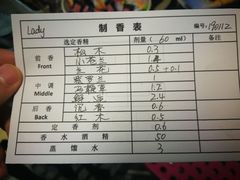 Lady
制香表
编号:190112
选定香精 剂量(60ml) 备注
前香 松木 0.3
Front 小苍兰
兰花 0.5+0.1
中调 1
Middle 马鞭草 1.2
2.4
后香 沉香 0.6
Back 红木 1.5
定香剂 0.6
香水酒精 50
蒸馏水 3